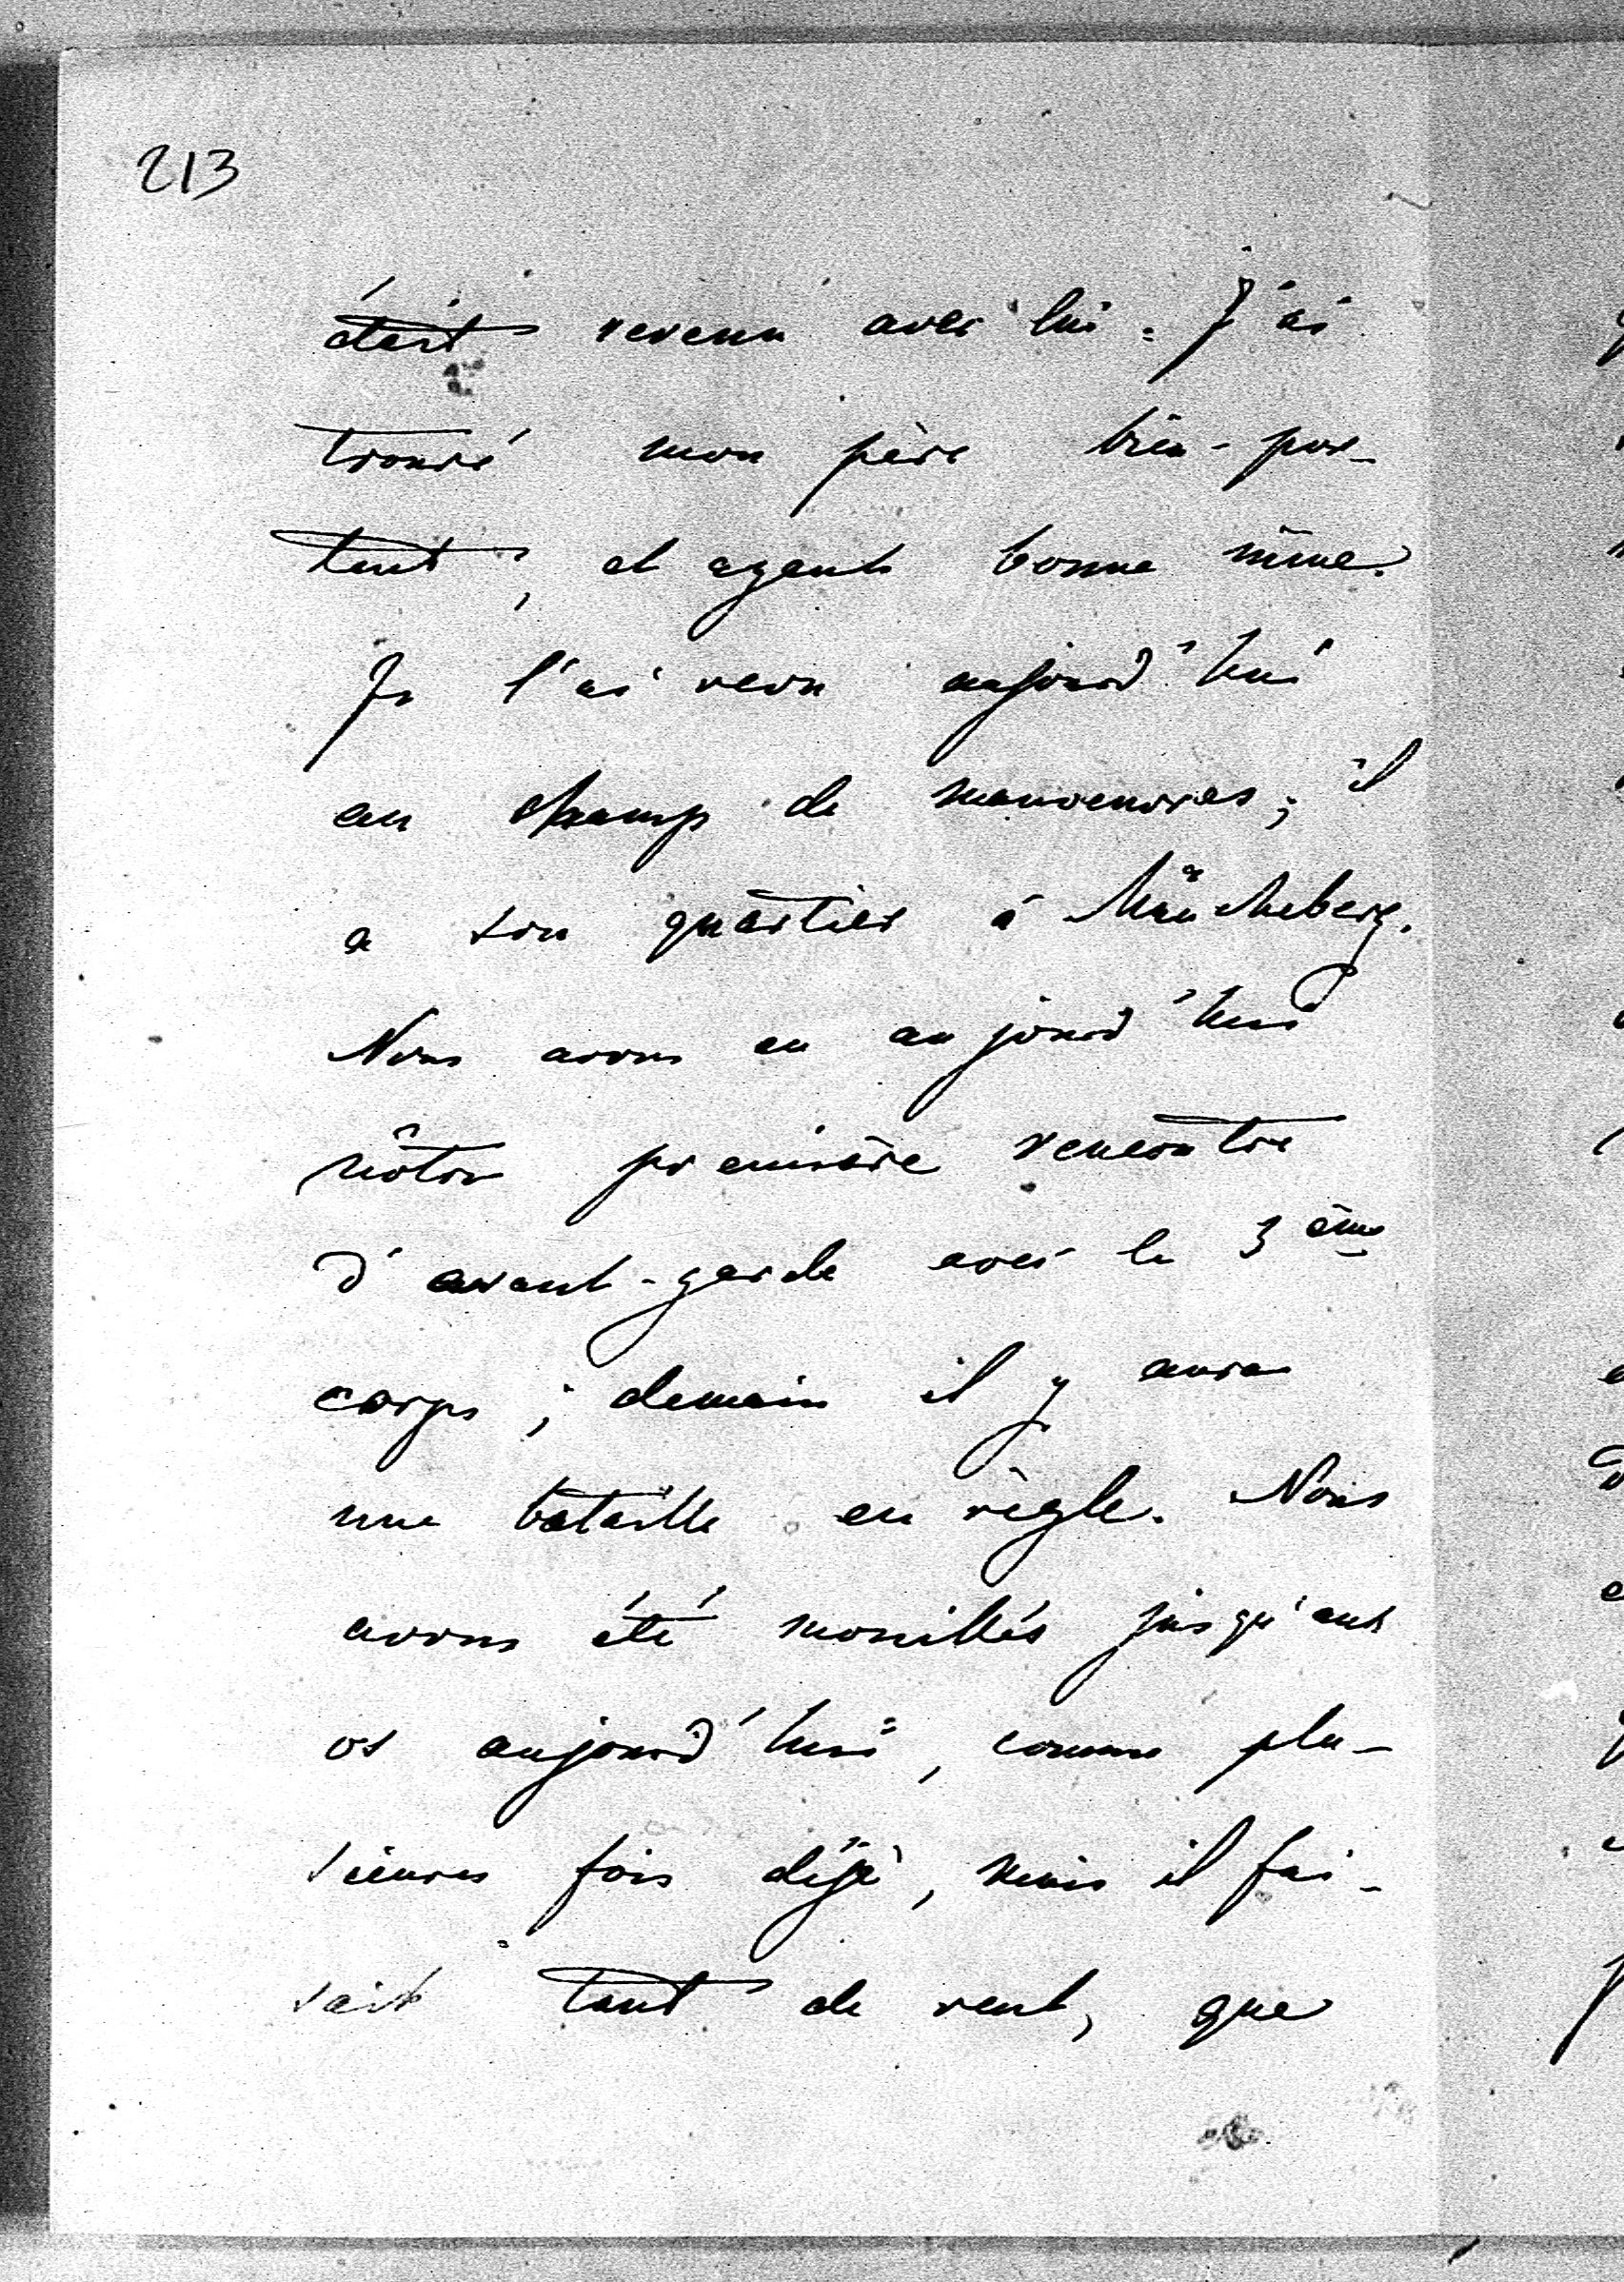 213
était revenu avec lui. J'ai
trouvé mon père bien-por-
tant, et ayant bonne mine.
Je l'ai revu aujourd'hui
au champ de manoeuvres; il
a son quartier à Müncheberg.
Nous avons eu aujourd'hui
nôtre première rencontre
d'avant-garde avec le 3ème
corps; demain il y aura
une bataille en règle. Nous
avons été mouillés jusqu'aux
os aujourd'hui, comme plu-
sieures fois déjà, mais il fai-
sait tant de vent, que